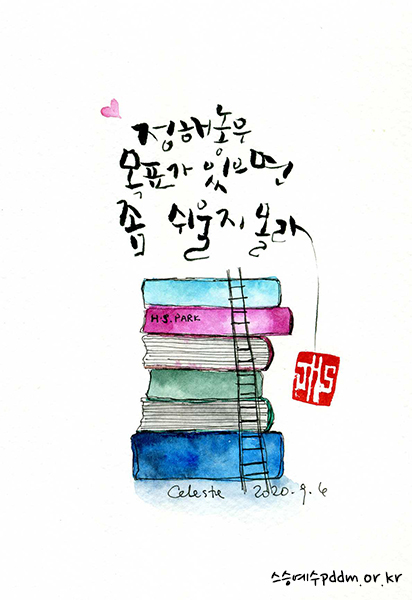 정해놓은
목표가 있으면
좀 쉬울지 몰라
H.S. PARK
JHS
Celeste 2020.9.6
스승예수pddm.or.kr